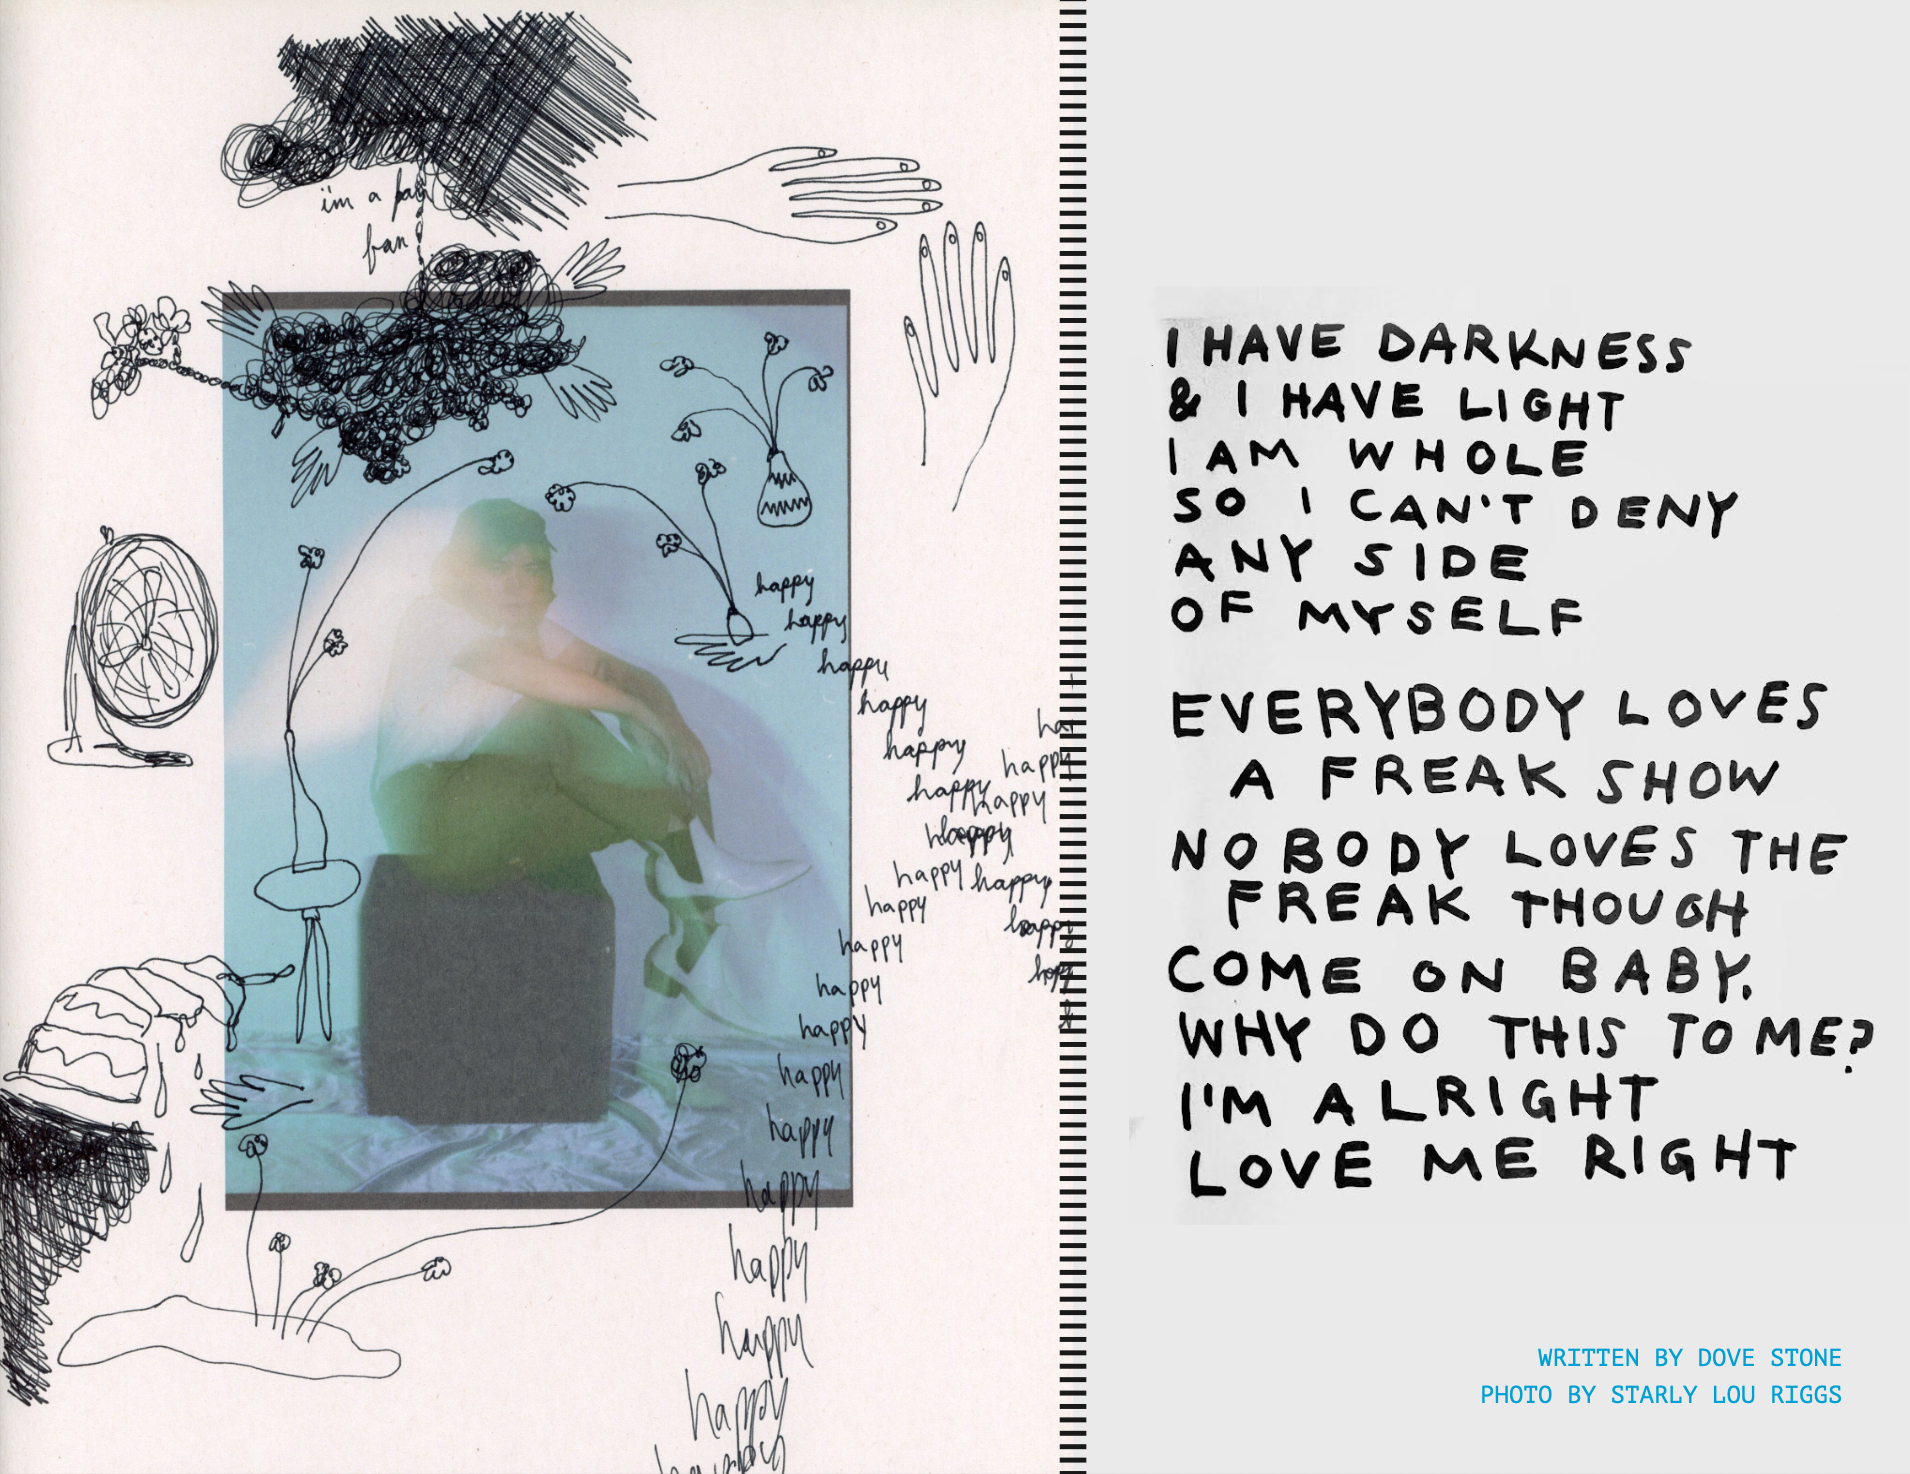 i'm a
fan
happy
happy
happy
happy
happy
happy
happy
happy
happy
happy happy
happy
happy
happy
happy
happy
happy
happy
happy
happy
happy
happy
happy
I HAVE DARKNESS
& I HAVE LIGHT
I AM WHOLE
SO I CAN'T DENY
ANY SIDE
OF MYSELF
EVERYBODY LOVES
A FREAK SHOW
NOBODY LOVES THE
FREAK THOUGH
COME ON BABY.
WHY DO THIS TO ME?
I'M ALRIGHT
LOVE ME RIGHT
WRITTEN BY DOVE STONE
PHOTO BY STARLY LOU RIGGS